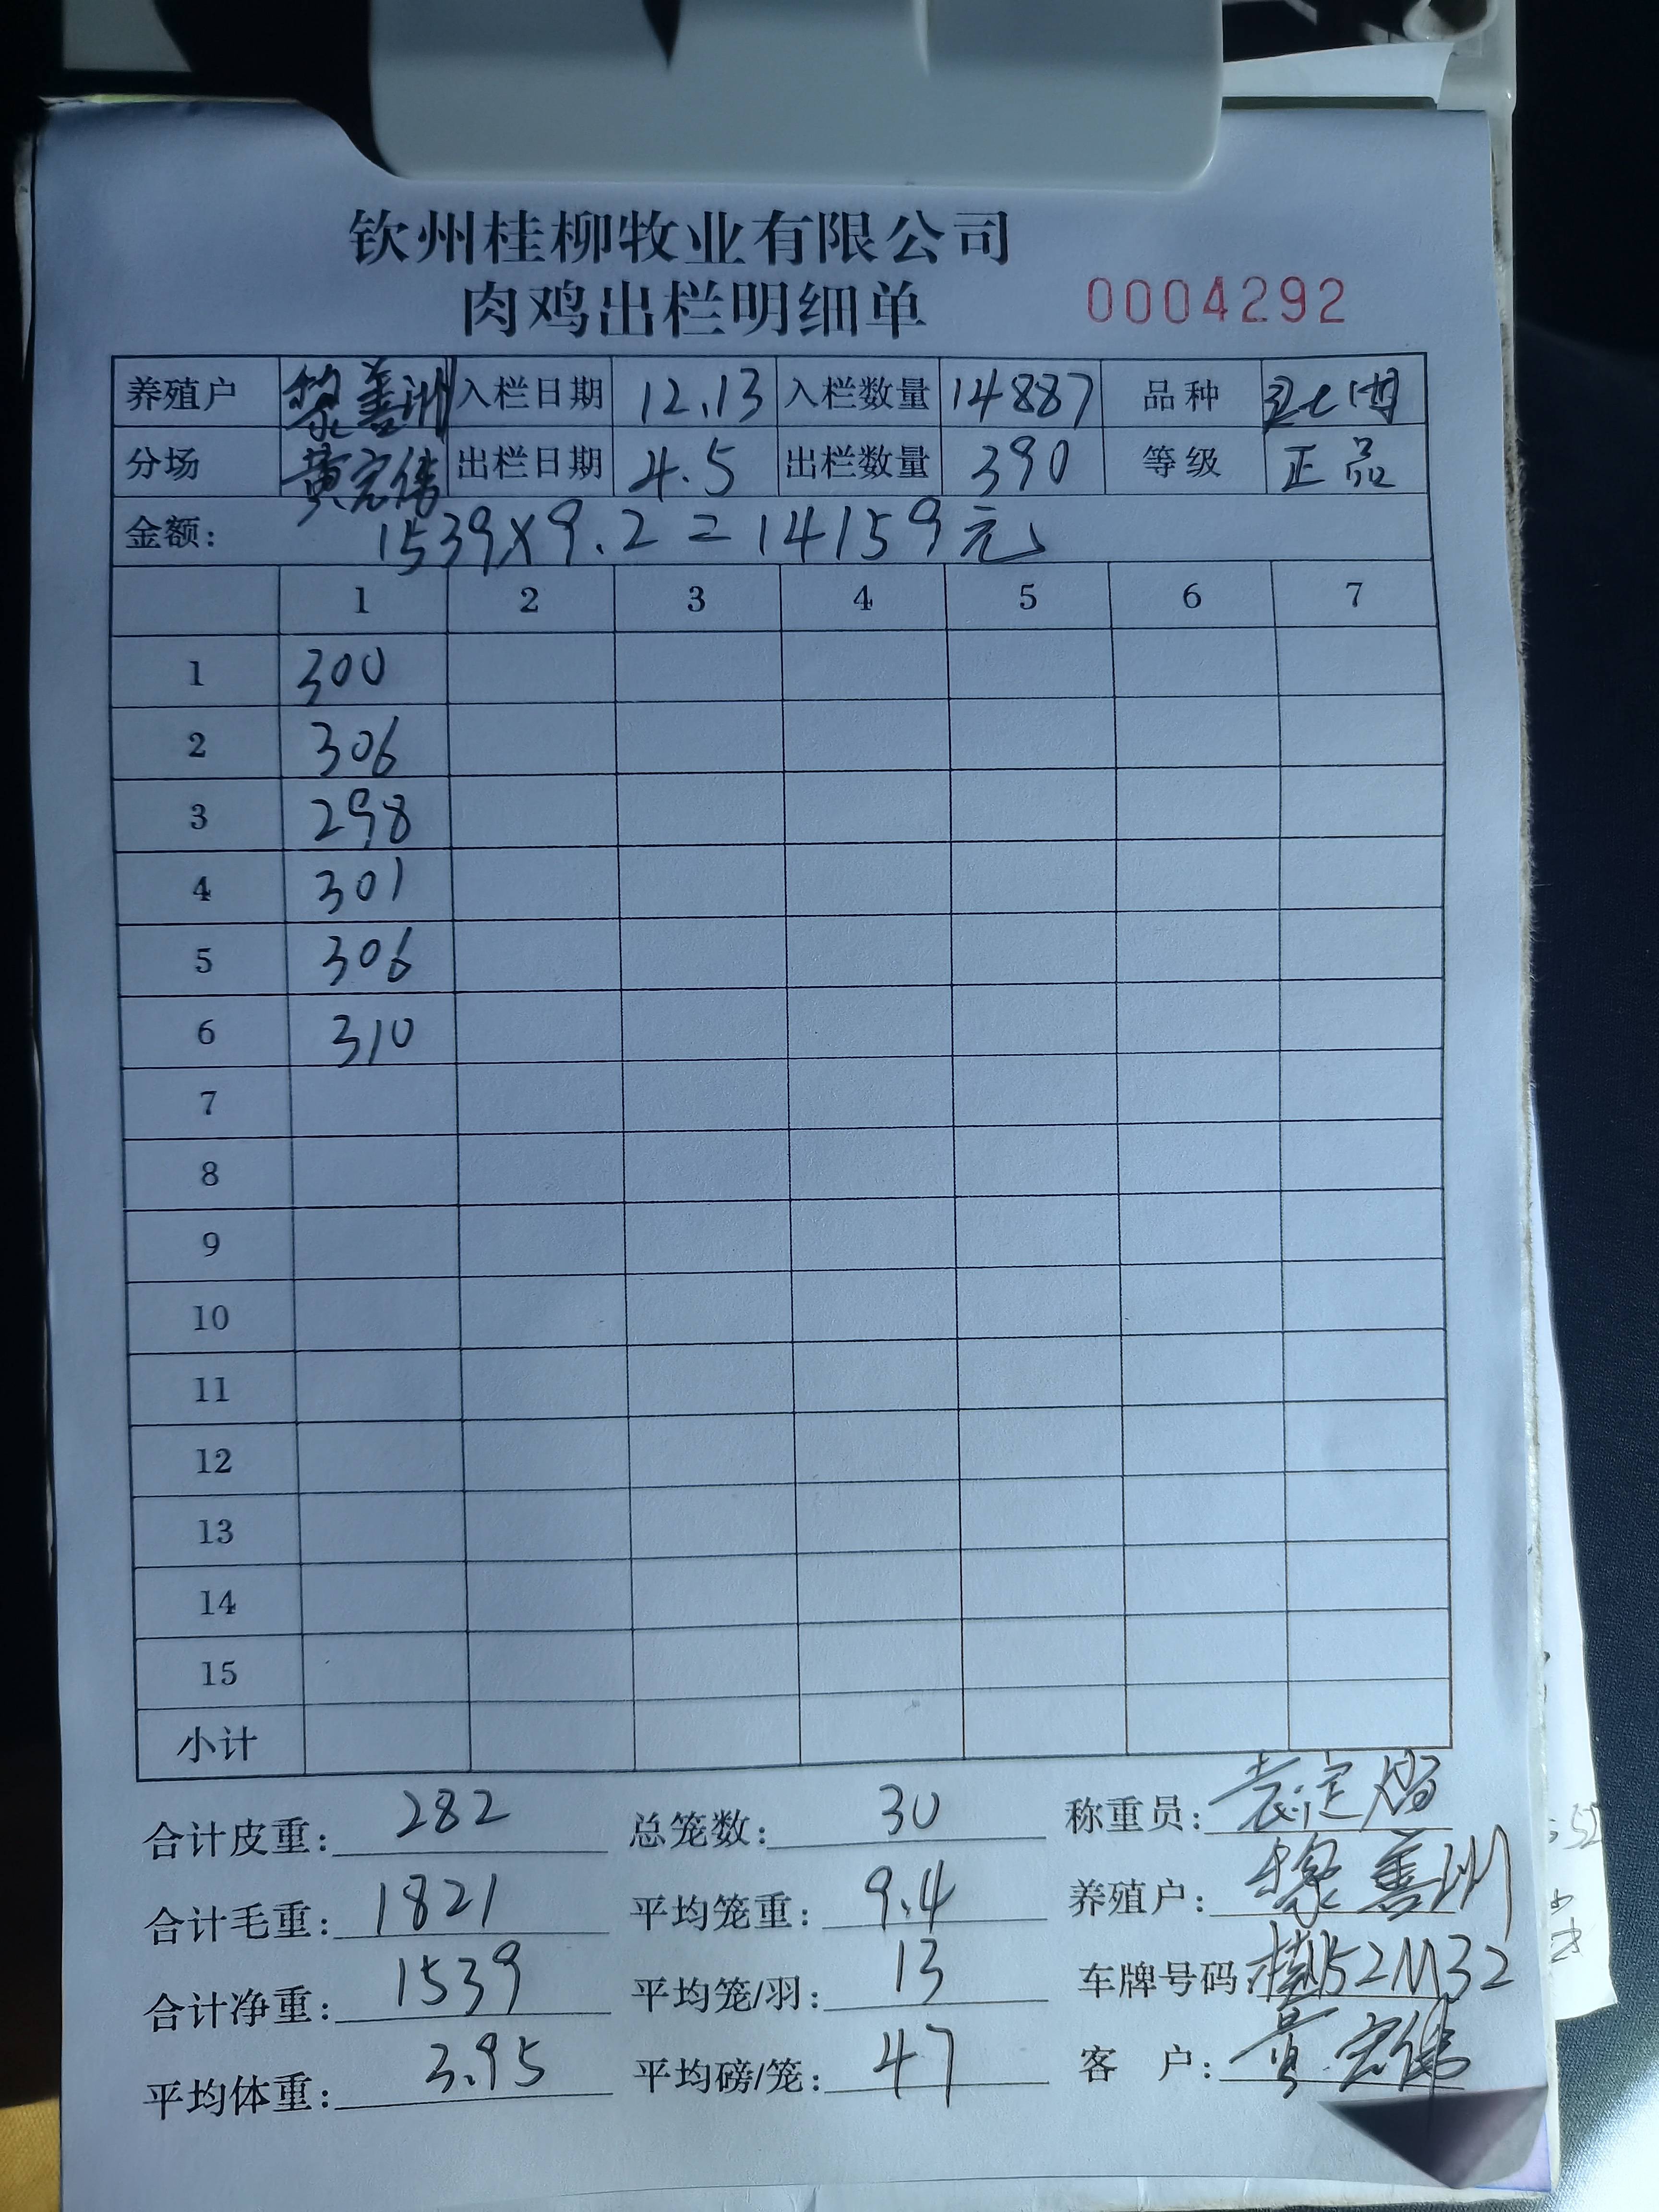 钦州桂柳牧业有限公司
肉鸡出栏明细单 0004292
养殖户 黎善洲 入栏日期 12.13 入栏数量 14887 品种
分场 黄宏伟 出栏日期 4.5 出栏数量 390 等级 正品
金额: 1539×9.2=14159元
1 2 3 4 5 6 7
1 300
2 306
3 298
4 301
5 306
6 310
7
8
9
10
11
12
13
14
15
小计
合计皮重: 282 总笼数: 30 称重员:
合计毛重: 1821 平均笼重: 9.4 养殖户: 黎善洲
合计净重: 1539 平均笼/羽: 13 车牌号码:
平均体重: 3.95 平均磅/笼: 47 客 户: 黄宏伟